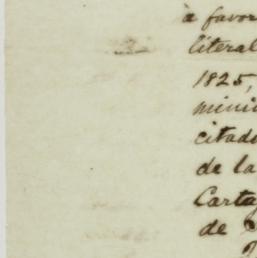 à favor
literal
1825,
mini
citado
de la
Carta
de